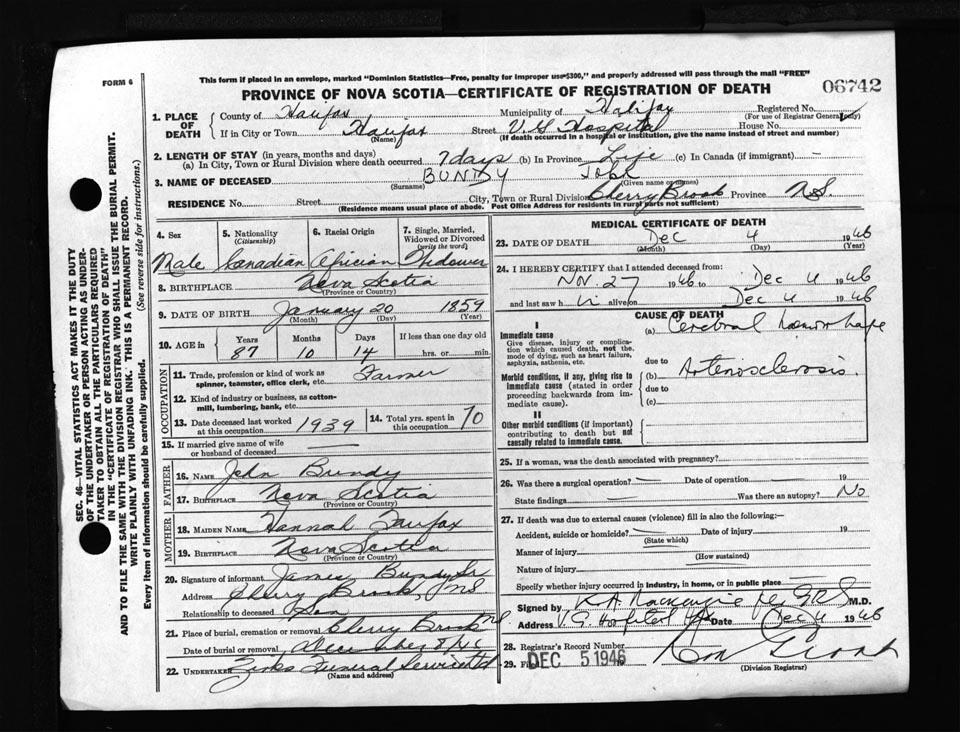 FORM 6
This form if placed in an envelope, marked "Dominion Statistics—Free, penalty for improper use $300," and properly addressed will pass through the mail "FREE"
PROVINCE OF NOVA SCOTIA—CERTIFICATE OF REGISTRATION OF DEATH
06742
1. PLACE OF DEATH
County of Halifax Municipality of Halifax Registered No.
(For use of Registrar General only)
If in City or Town Halifax Street V G Hospital House No.
(Name) (If death occurred in a hospital or institution, give the name instead of street and number)
2. LENGTH OF STAY (in years, months and days)
(a) In City, Town or Rural Division where death occurred 7 days (b) In Province Life (c) In Canada (if immigrant) —
3. NAME OF DECEASED BUNDY
(Surname) (Given name or names)
RESIDENCE No. Street City, Town or Rural Division Cherry Brook Province N.S.
(Residence means usual place of abode. Post Office Address for residents in rural parts not sufficient)
4. Sex 5. Nationality (Citizenship) 6. Racial Origin 7. Single, Married, Widowed or Divorced (write the word)
Male Canadian African Widower
8. BIRTHPLACE Nova Scotia
(Province or Country)
9. DATE OF BIRTH January 20 1859
(Month) (Day) (Year)
10. AGE in Years Months Days If less than one day old
87 10 14 hrs. or min.
OCCUPATION
11. Trade, profession or kind of work as spinner, teamster, office clerk, etc. Farmer
12. Kind of industry or business, as cotton-mill, lumbering, bank, etc.
13. Date deceased last worked at this occupation 1939 14. Total yrs. spent in this occupation 70
15. If married give name of wife or husband of deceased
FATHER
16. NAME John Bundy
17. BIRTHPLACE Nova Scotia
(Province or Country)
MOTHER
18. MAIDEN NAME Hannah Fairfax
19. BIRTHPLACE Nova Scotia
(Province or Country)
20. Signature of informant James Bundy Sr
Address Cherry Brook, NS
Relationship to deceased Son
21. Place of burial, cremation or removal Cherry Brook NS
Date of burial or removal December
22. UNDERTAKER Zinks Funeral Service Ltd
(Name and address)
MEDICAL CERTIFICATE OF DEATH
23. DATE OF DEATH Dec 4 1946
(Month) (Day) (Year)
24. I HEREBY CERTIFY that I attended deceased from:
Nov. 27 1946 to Dec 4 1946
and last saw h i alive on Dec 4 1946
CAUSE OF DEATH
I
Immediate cause (a) Cerebral Haemorrhage
Give disease, injury or complication which caused death, not the mode of dying, such as heart failure, asphyxia, asthenia, etc.
due to
Morbid conditions, if any, giving rise to immediate cause (stated in order proceeding backwards from immediate cause). (b) Arteriosclerosis.
due to
(c)
II
Other morbid conditions (if important) contributing to death but not causally related to immediate cause.
25. If a woman, was the death associated with pregnancy?
26. Was there a surgical operation? — Date of operation — 19
State findings Was there an autopsy? No
27. If death was due to external causes (violence) fill in also the following:—
Accident, suicide or homicide? Date of injury 19
(State which)
Manner of injury
(How sustained)
Nature of injury
Specify whether injury occurred in industry, in home, or in public place
Signed by K A Mackenzie per GRS M.D.
Address V.G. Hospital Hfx Date Dec 4 1946
28. Registrar's Record Number
29. Filed DEC 5 1946
(Division Registrar)
SEC. 46—VITAL STATISTICS ACT MAKES IT THE DUTY
OF THE UNDERTAKER OR PERSON ACTING AS UNDER-
TAKER TO OBTAIN ALL THE PARTICULARS REQUIRED
IN THE "CERTIFICATE OF REGISTRATION OF DEATH"
AND TO FILE THE SAME WITH THE DIVISION REGISTRAR WHO SHALL ISSUE THE BURIAL PERMIT.
WRITE PLAINLY WITH UNFADING INK. THIS IS A PERMANENT RECORD.
Every item of information should be carefully supplied. (See reverse side for instructions.)